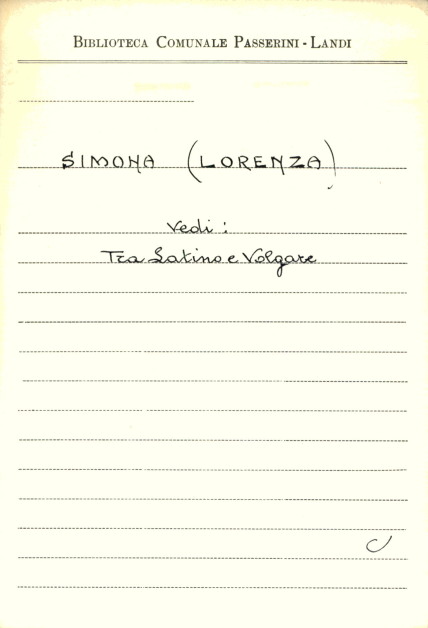 BIBLIOTECA COMUNALE PASSERINI - LANDI
SIMONA (LORENZA)
Vedi:
Tra Latino e Volgare